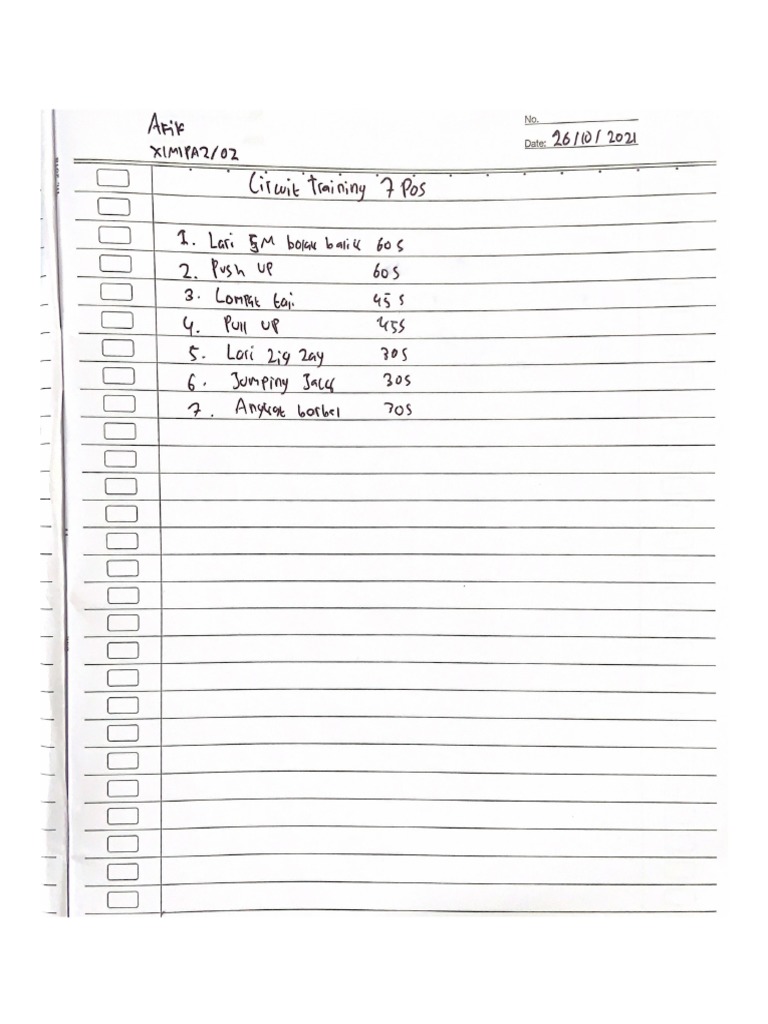 Afif
No.
XIMIPA2/02
Date: 26/10/2021
Circuit Training 7 Pos
1. Lari 5M bolak balik 60s
2. Push UP 60s
3. Lompat tali 45s
4. Pull UP 45s
5. Lari zig zag 30s
6. Jumping Jack 30s
7. Angkat barbel 70s